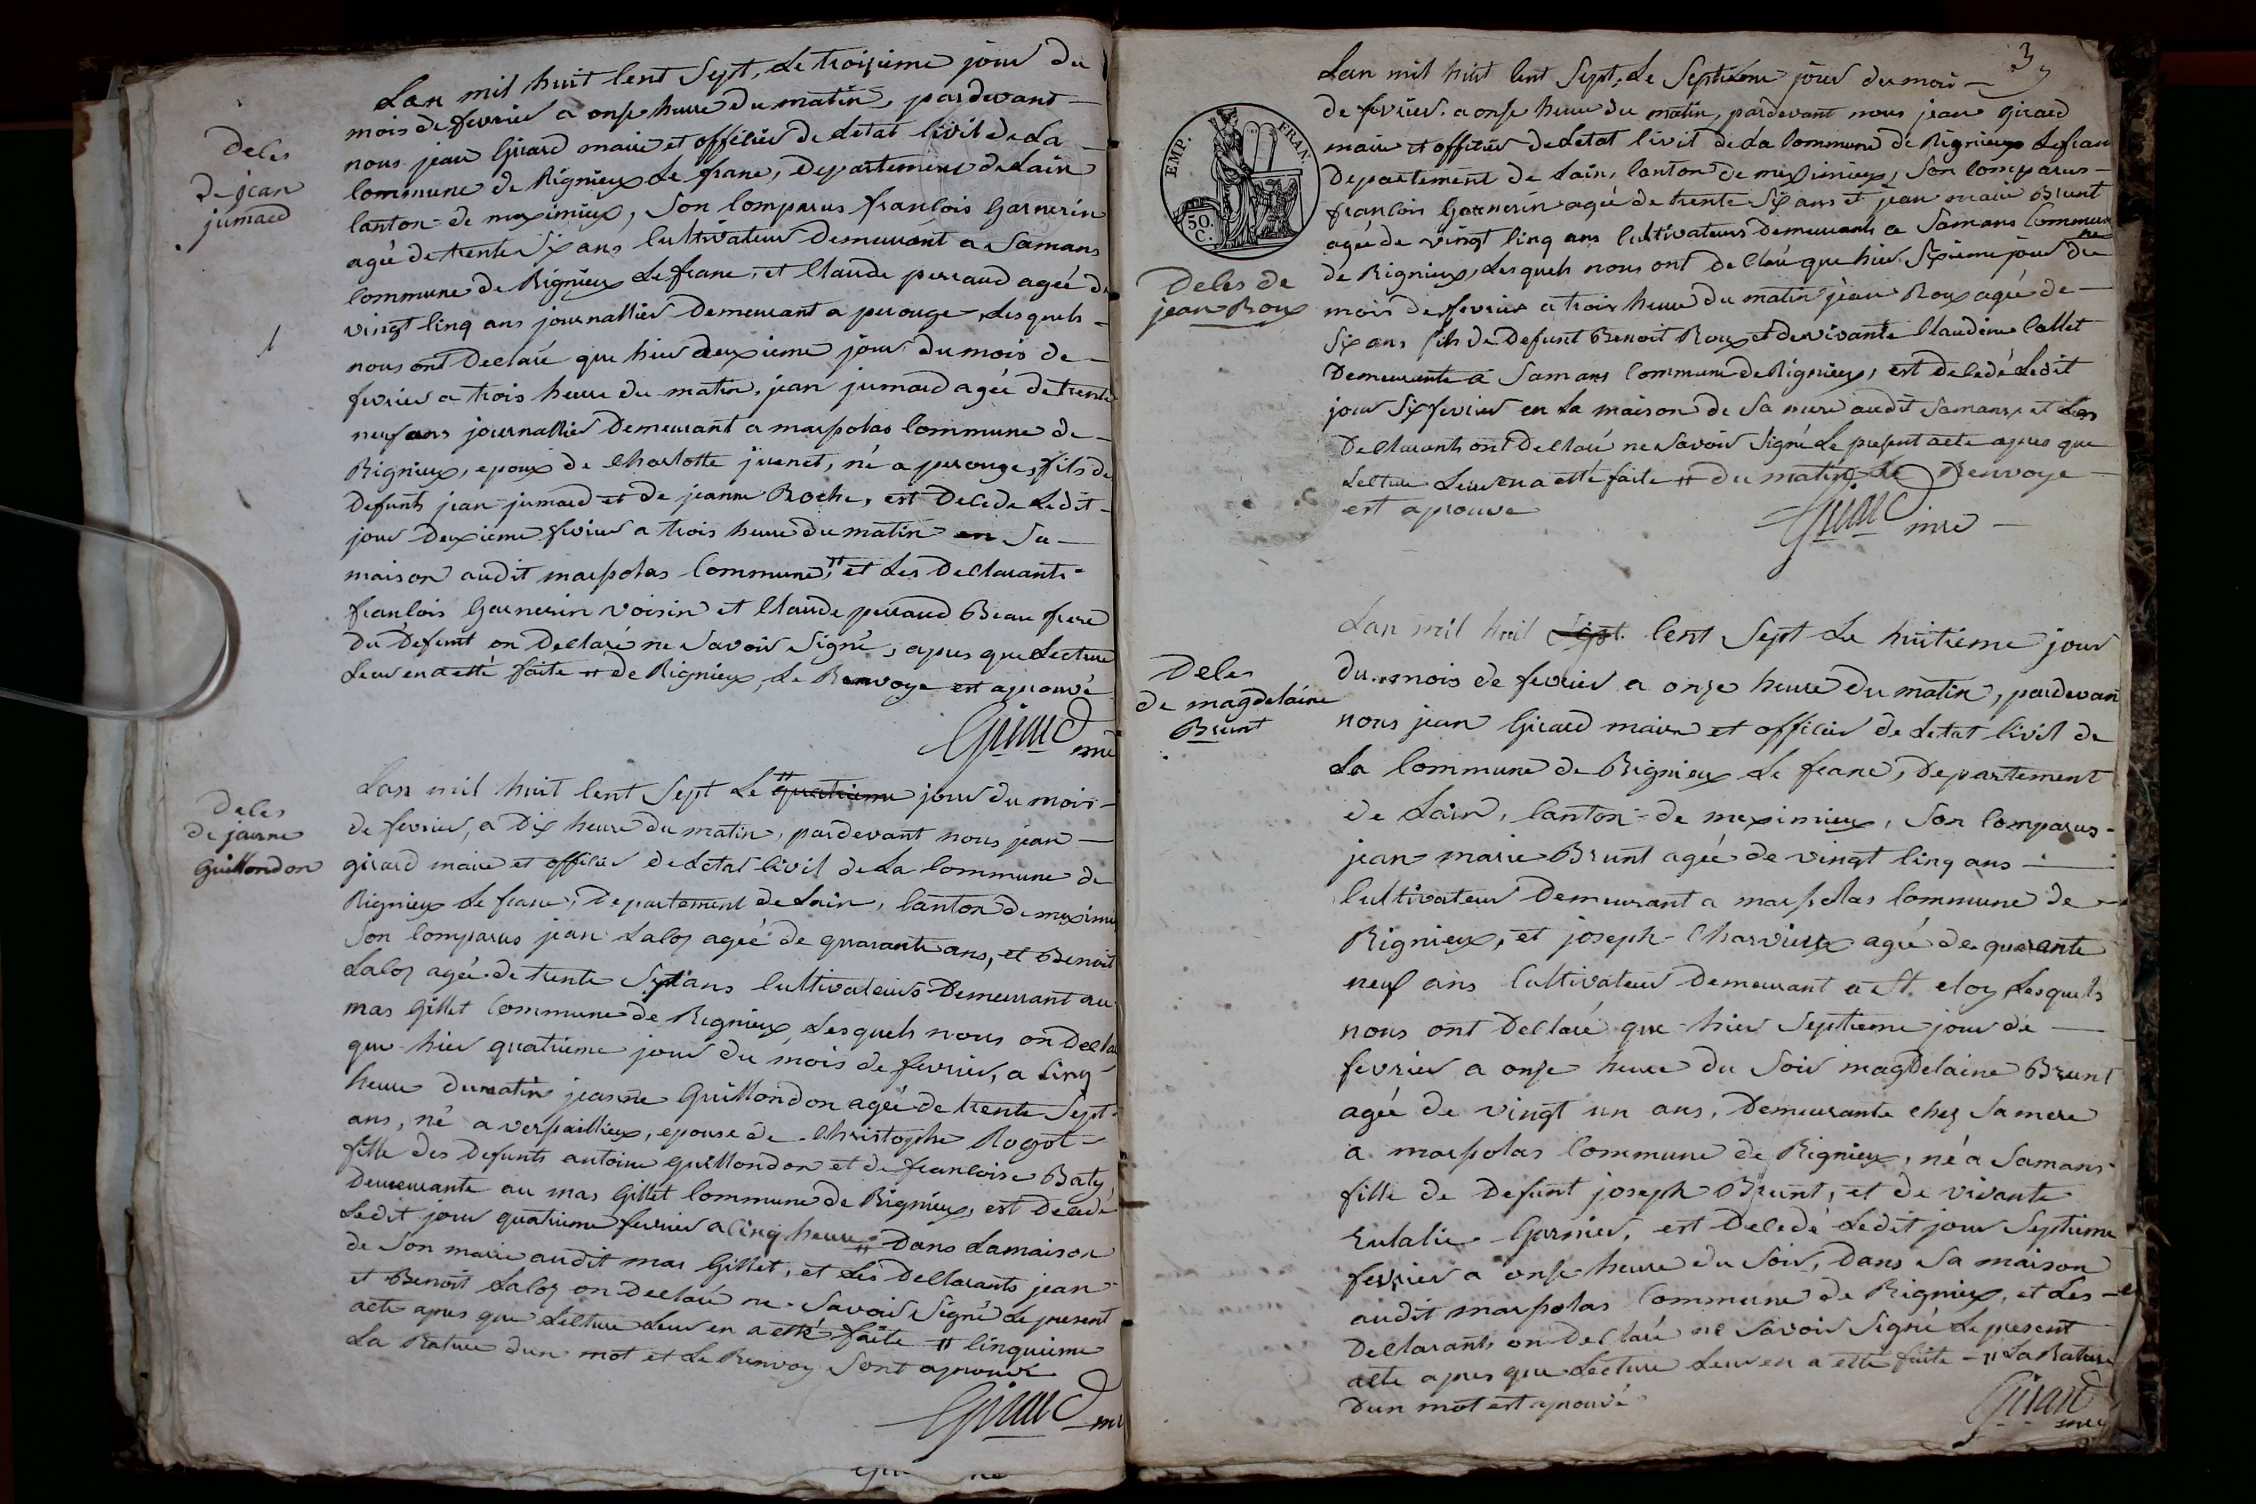 Deles
de jean
jumard
Lan mil huit Cent Sept, Le troisieme jour du
mois de fevrier a onse heure du matin, pardevant
nous jean Girard maire et officier de Letat Civil de La
Commune de Rignieux Le franc, Departement de Lain
Canton de meximieux, Son Comparus francois Garnerin
agé de trente Six ans Cultivateur Demeurant a Samans
Commune de Rignieux Le franc, et Claude perraud agée de
vingt Cinq ans journallier Demeurant a perouge, Lesquels
nous ont Declaré que hier deuxieme jour du mois de
fevrier a trois heure du matin, jean jumard agée de trente
neuf ans journallier Demeurant a maspolas Commune de
Rignieux, epoux de Charlotte juenet, né a perouge, fils de
Defunts jean jumard et de jeanne Roche, est Decede Ledit
jour Deuxieme fevrier a trois heure du matin en Sa
maison audit maspolas Commune, # et Les Declarants
francois Garnerin voisin et Claude perraud Beau frere
du Defunt on Declaré ne Savoir Signé, apres que Lecture
Leur en a etté faite # de Rignieux, Le Renvoye est aprouvé
Girard mre
Deles
de jeanne
Guillondon
Lan mil huit Cent Sept Le # quatrieme jour du mois
de fevrier, a Dix heure du matin, pardevant nous jean
girard maire et officier de Letat Civil de La Commune de
Rignieux Le franc, Departement de Lain, Canton de meximieux
Son Comparus jean Laloz ageé de quarante ans, et Benoit
Laloz ageé de trente Sept ans Cultivateurs Demeurant au
mas Gillet Commune de Rignieux Lesquels nous on Declaré
que hier quatrieme jour du mois de fevrier, a Cinq
heure du matin jeanne Guillondon ageé de trente Sept
ans, né a versaillieux, epouse de Christophe Rogot
fille des Defunts antoine Guillondon et de francoise Baty
Demeurante au mas Gillet Commune de Rignieux, est Decedé
Ledit jour quatrieme fevrier a Cinq heure Dans La maison
de Son marie audit mas Gillet, et Les Declarants jean
et Benoit Laloz on Declaré ne Savoir Signé Le present
acte apres que Lecture Leur en a etté faite # Cinquieme
La Rature dun mot et Le Renvoy Sont aprouvé
Girard mre
3
EMP. FRAN.
50 C.
Lan mil huit Cent Sept, Le Septieme jour du mois
de fevrier a onse heure du matin, pardevant nous jean Girard
maire et officier de Letat Civil de La Commune de Rignieux Le franc
Departement de Lain, Canton de meximieux, Son Comparus
francois Garnerin ageé de trente Six ans et jean marie Brunt
ageé de vingt Cinq ans Cultivateurs Demeurants a Samans Commune
de Rignieux, Lesquels nous ont Declaré que hier Sixieme jour du
Deles de
jean Roux
mois de fevrier a trois heure du matin jean Roux ageé de
Six ans fils de Defunt Benoit Roux et de vivante Claudine Collet
Demeurante a Samans Commune de Rignieux, est Decedé Ledit
jour Six fevrier en La maison de Sa mere audit Samans, et Les
Declarants ont Declaré ne Savoir Signé Le present acte apres que
Lecture Leur en a etté faite # du matin Le Renvoye
est aprouvé
Girard mre
Deles
de magdelaine
Brunt
Lan mil huit Sept Cent Sept Le huitieme jour
du mois de fevrier a onze heure du matin, pardevant
nous jean Girard maire et officier de Letat Civil de
La Commune de Rignieux Le franc, Departement
de Lain, Canton de meximieux, Son Comparus
jean marie Brunt ageé de vingt Cinq ans
Cultivateur Demeurant a maspolas Commune de
Rignieux, et joseph Charvieux ageé de quarante
neuf ans Cultivateur Demeurant a St. eloy Lesquels
nous ont Declaré que hier Septieme jour de
fevrier a onse heure du Soir magdelaine Brunt
ageé de vingt un ans, Demeurante chez Sa mere
a maspolas Commune de Rignieux, né a Samans
fille de Defunt joseph Brunt, et de vivante
Eulalie Garnier, est Decedé Ledit jour Septieme
fevrier a onse heure du Soir, Dans Sa maison
audit maspolas Commune de Rignieux, et Les
Declarants on Declaré ne Savoir Signé Le present
acte apres que Lecture Leur en a etté faite # La Rature
Dun mot est aprouvé
Girard mre